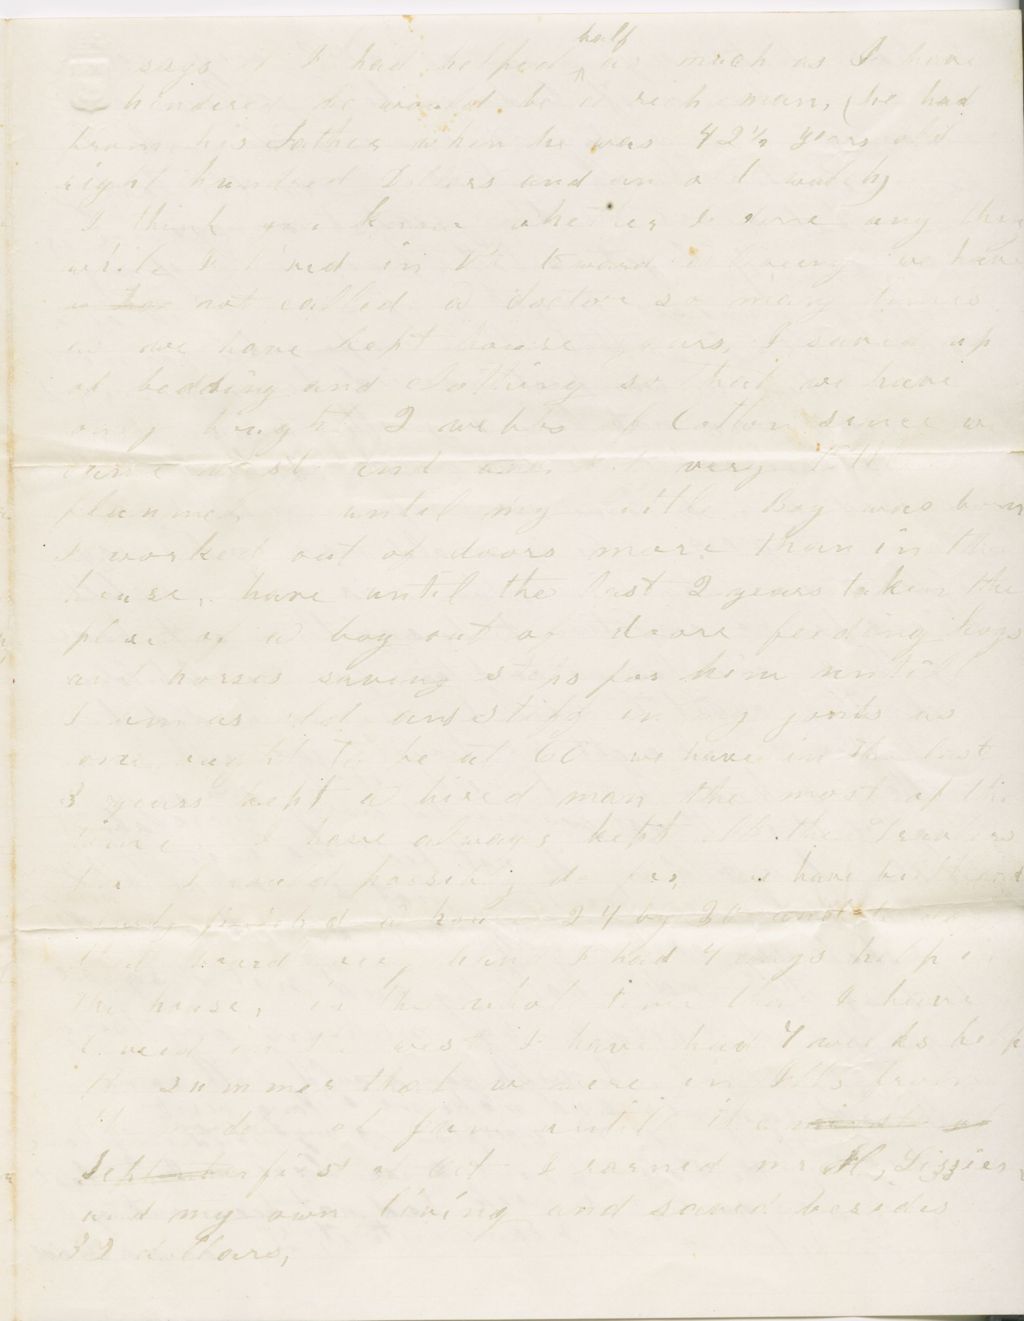 says if I had helped half as much as I have
hindered he would be a rich man, (he had
from his Father when he was 42½ years old
eight hundred Dollars and an old watch)
I think you know whether I done any thing
while I lived in the toward a living we have
not called a doctor so many times
as we have kept house years, I saved up
of bedding and clothing so that we have
only bought 2 webs of Cotton since we
came west and very little
flannel until my little Boy was born
I worked out of doors more than in the
house, have until the last 2 years taken the
place of a boy out of doors feeding hogs
and horses saving steps for him until
I am as old and stiff in my joints as
one ought to be at 60 we have in the last
3 years kept a hired man the most of the
time I have always kept all the
I could possibly do for, we have built and
nearly finished a house 24 by 30 and
hired very hand I had 4 days help in
the house, in the whole time that I have
lived in the west I have had 4 weeks help
the summer that we were in Ills from
the of June until the first of
Sept first of Oct I earned Mr H, Lizzies
and my own living and saved besides
32 dollars,